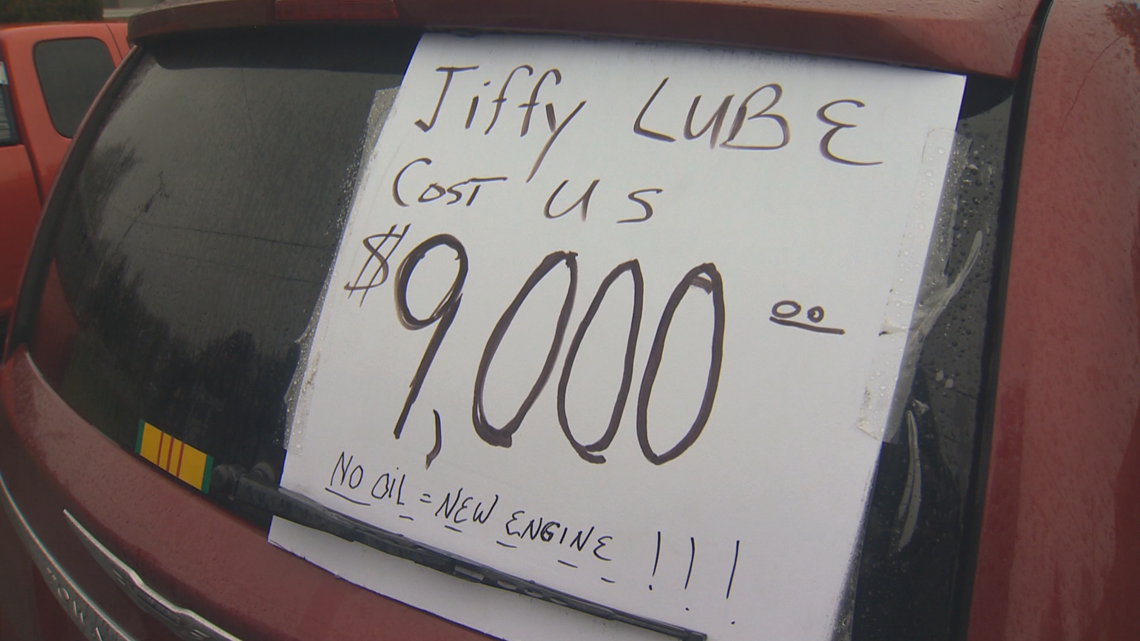 Jiffy LUBE
COST US
$9,000 00
NO OIL = NEW ENGINE !!!